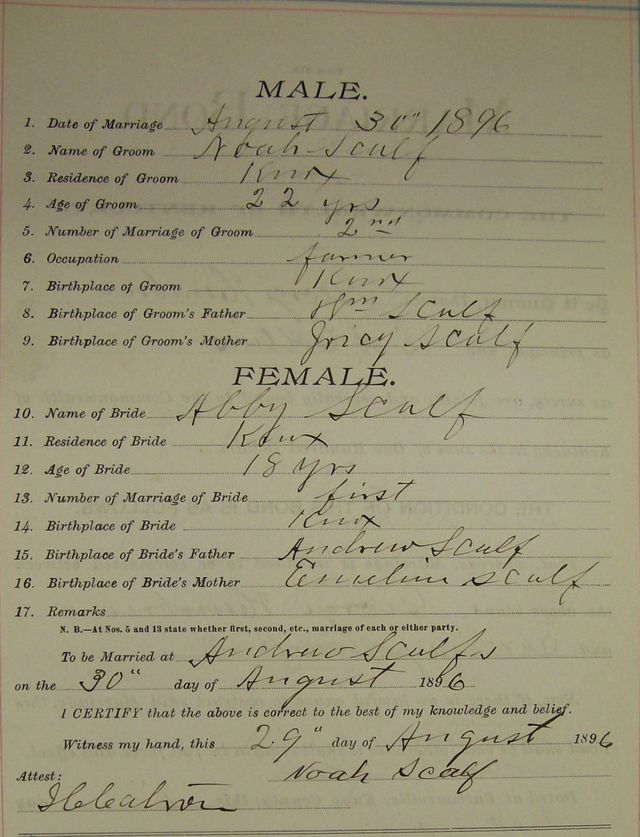 MALE.
1. Date of Marriage August 30" 1896
2. Name of Groom Noah Scalf
3. Residence of Groom Knox
4. Age of Groom 22 yrs
5. Number of Marriage of Groom 2nd
6. Occupation farmer
7. Birthplace of Groom Knox
8. Birthplace of Groom's Father Wm Scalf
9. Birthplace of Groom's Mother Scalf
FEMALE.
10. Name of Bride Abby Scalf
11. Residence of Bride Knox
12. Age of Bride 18 yrs
13. Number of Marriage of Bride first
14. Birthplace of Bride Knox
15. Birthplace of Bride's Father Andrew Scalf
16. Birthplace of Bride's Mother Emeline Scalf
17. Remarks
N. B.—At Nos. 5 and 13 state whether first, second, etc., marriage of each or either party.
To be Married at Andrew Scalfs
on the 30" day of August 1896
I CERTIFY that the above is correct to the best of my knowledge and belief.
Witness my hand, this 29" day of August 1896
Noah Scalf
Attest: